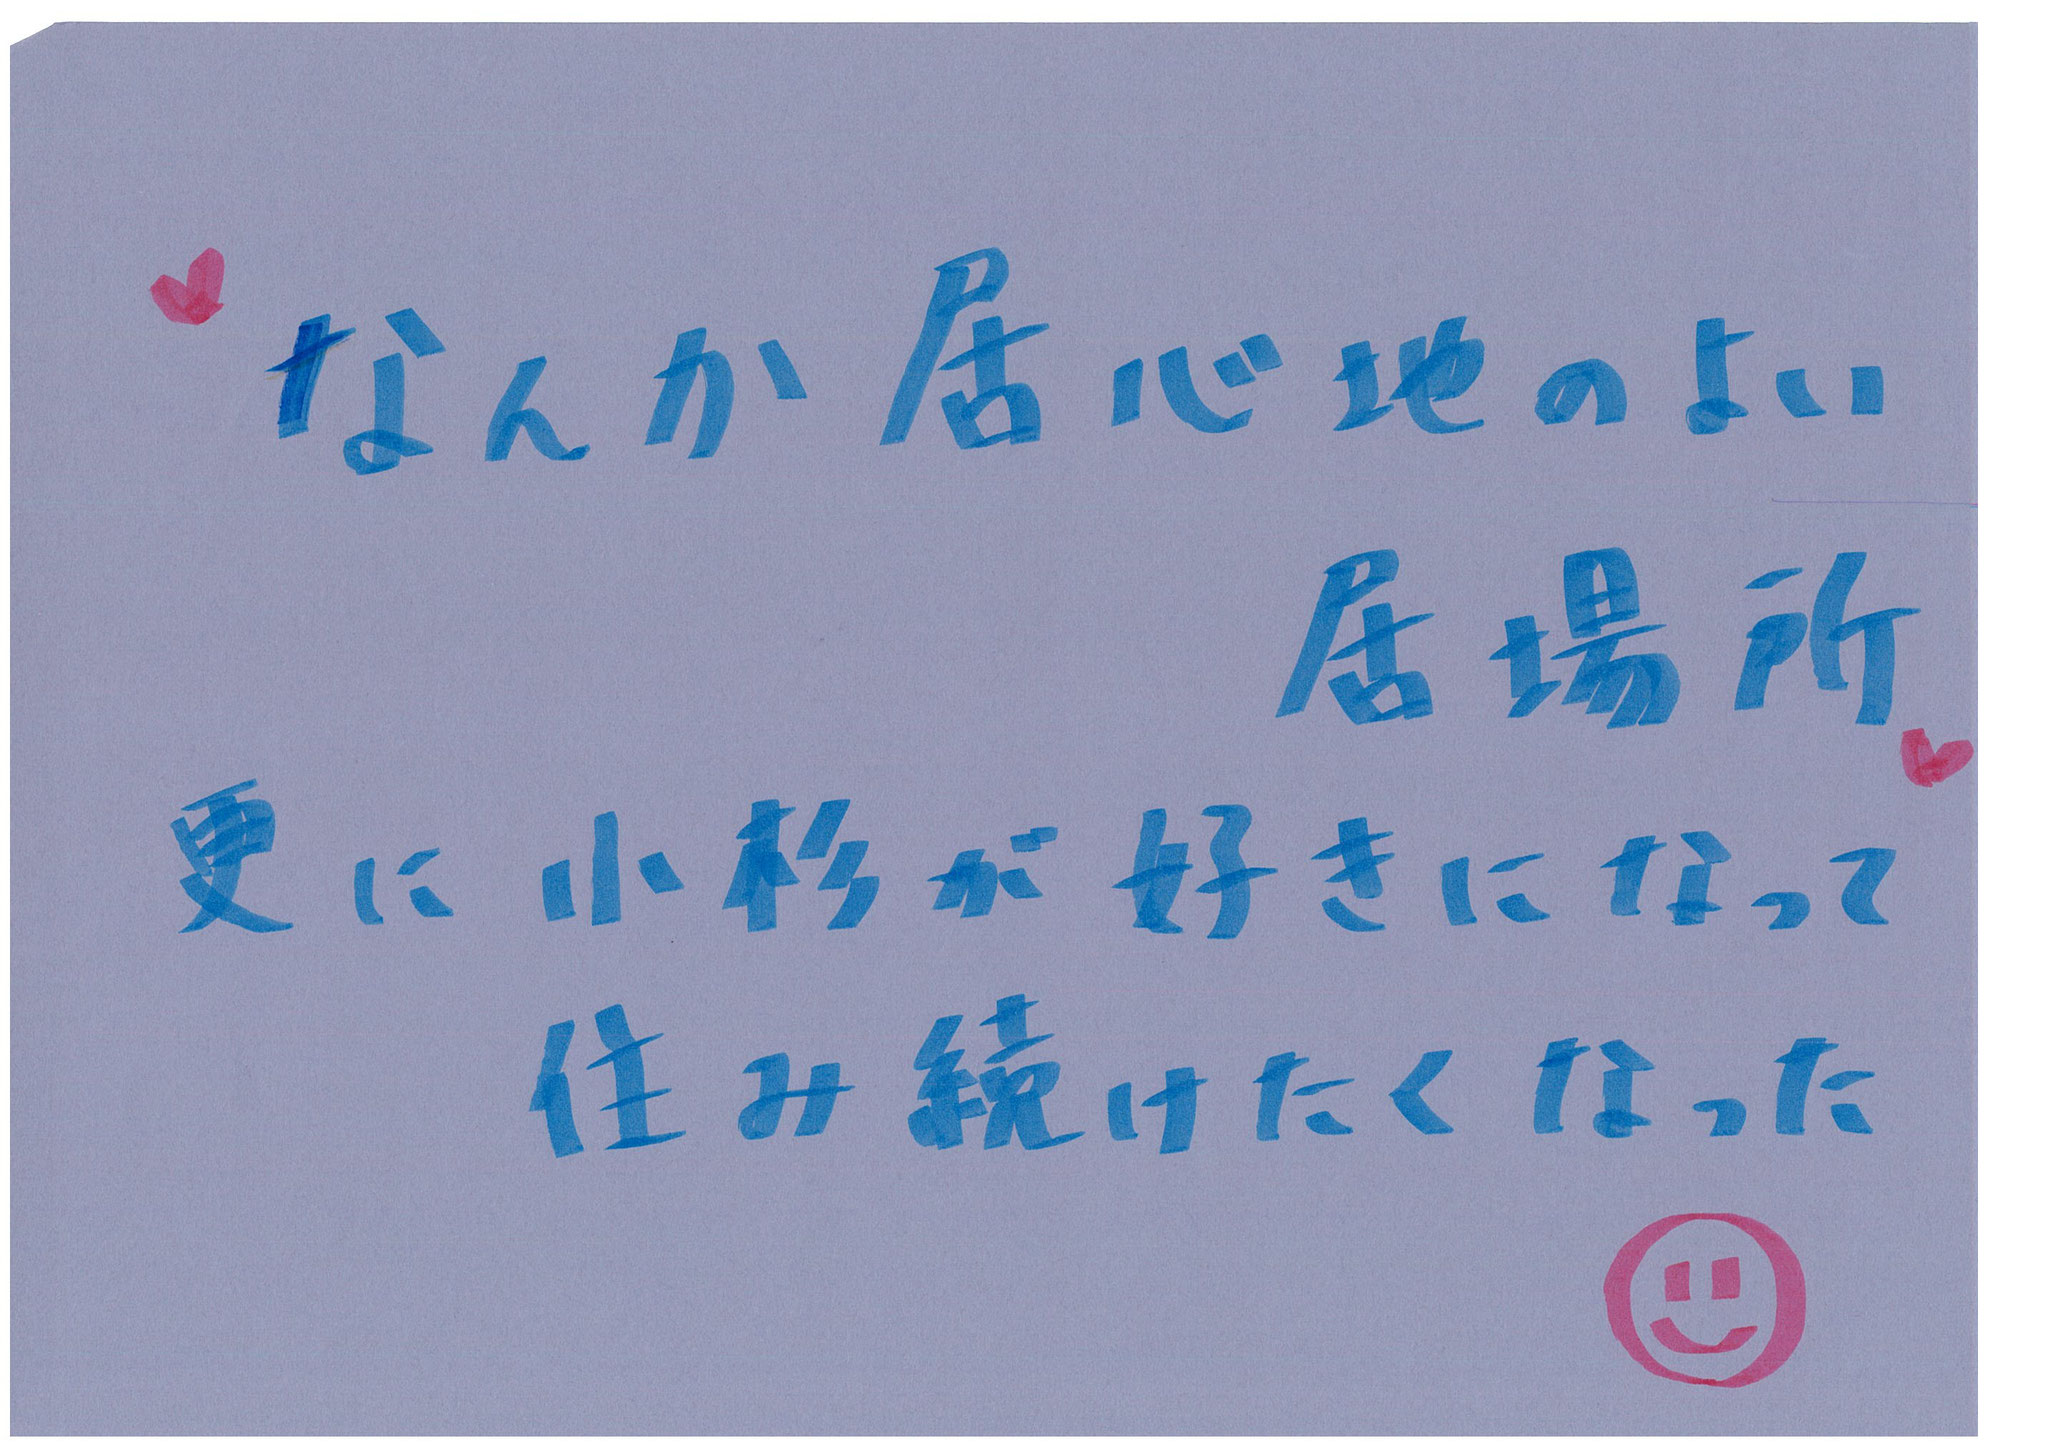 なんか居心地のよい
居場所
更に小杉が好きになって
住み続けたくなった